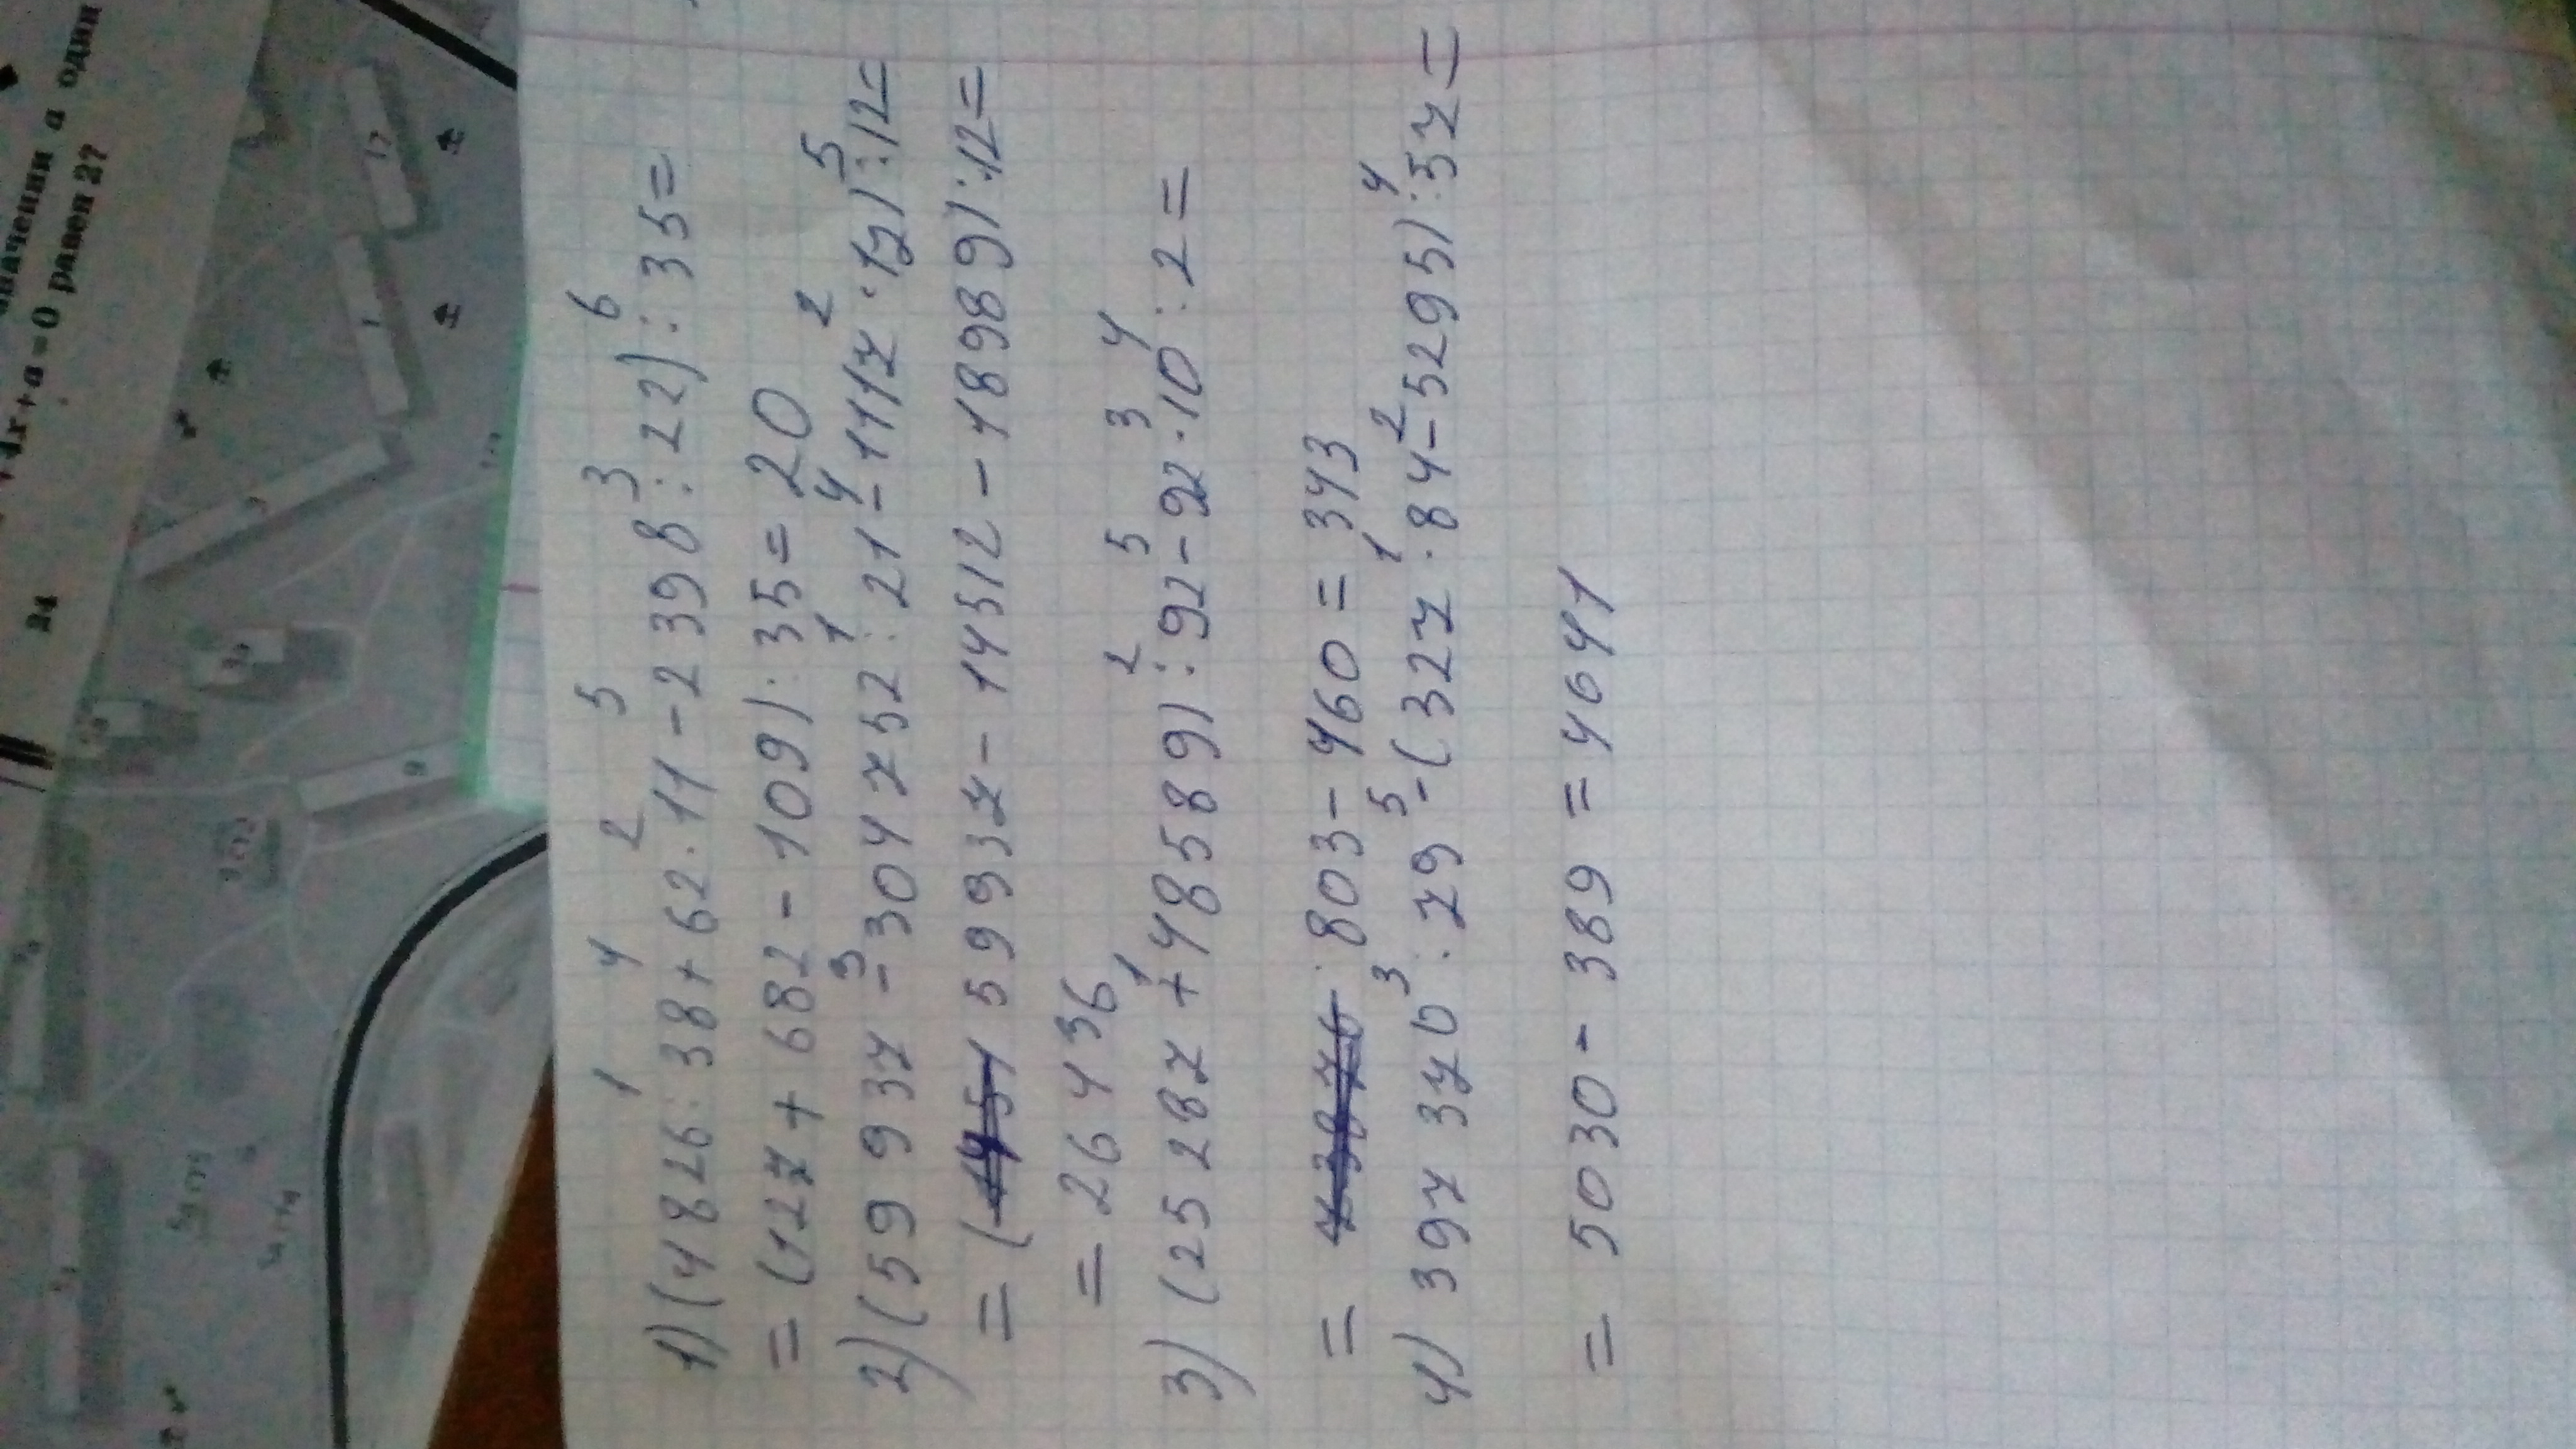 значении a один
4x+a=0 равен 2?
24
1) (4826:38+62·11-2398:22):35=
1 4 2 5 3 6
=(127+682-109):35=20
2) (59937-304752:21-1117·17):12=
3 1 4 2 5
=(59937-14512-18989):12=
=26436
3) (25287+48589):92-92·10:2=
1 2 5 3 4
=803-460=343
4) 397370:79-(327·84-5295):57=
3 5 1 2 4
=5030-389=4641